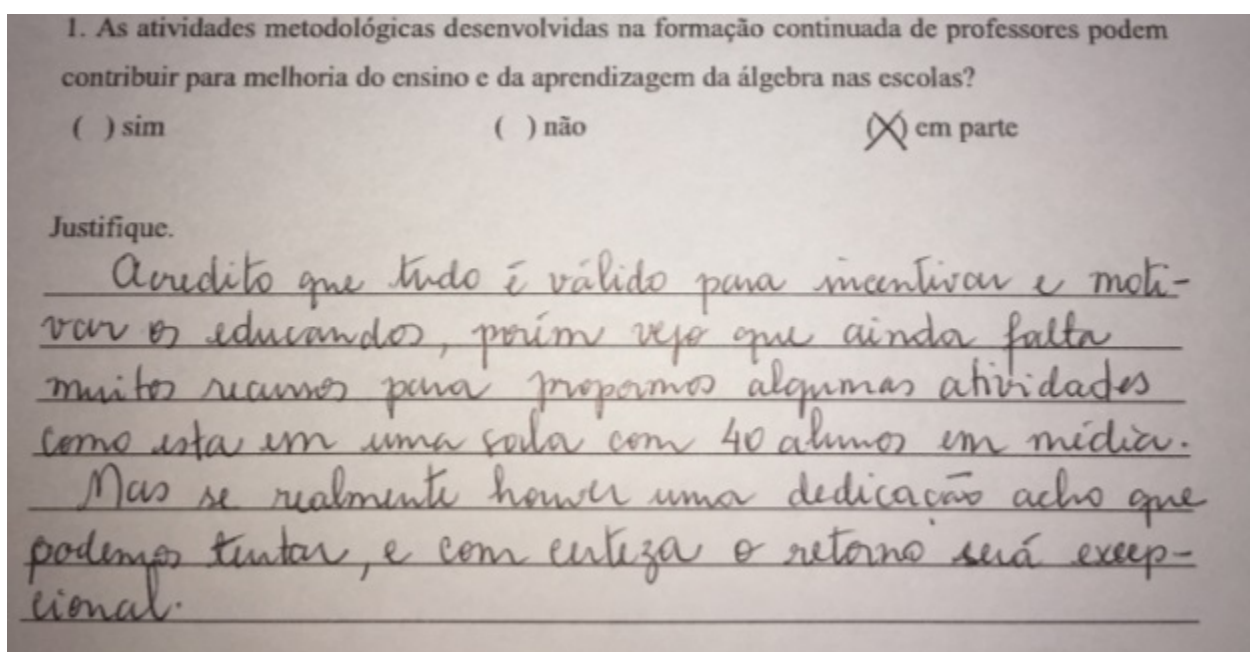 1. As atividades metodológicas desenvolvidas na formação continuada de professores podem
contribuir para melhoria do ensino e da aprendizagem da álgebra nas escolas?
( ) sim ( ) não (X) em parte
Justifique.
Acredito que tudo é válido para incentivar e moti-
var os educandos, porém vejo que ainda falta
muitos recursos para propormos algumas atividades
como esta em uma sala com 40 alunos em média.
Mas se realmente houver uma dedicação acho que
podemos tentar, e com certeza o retorno será excep-
cional.